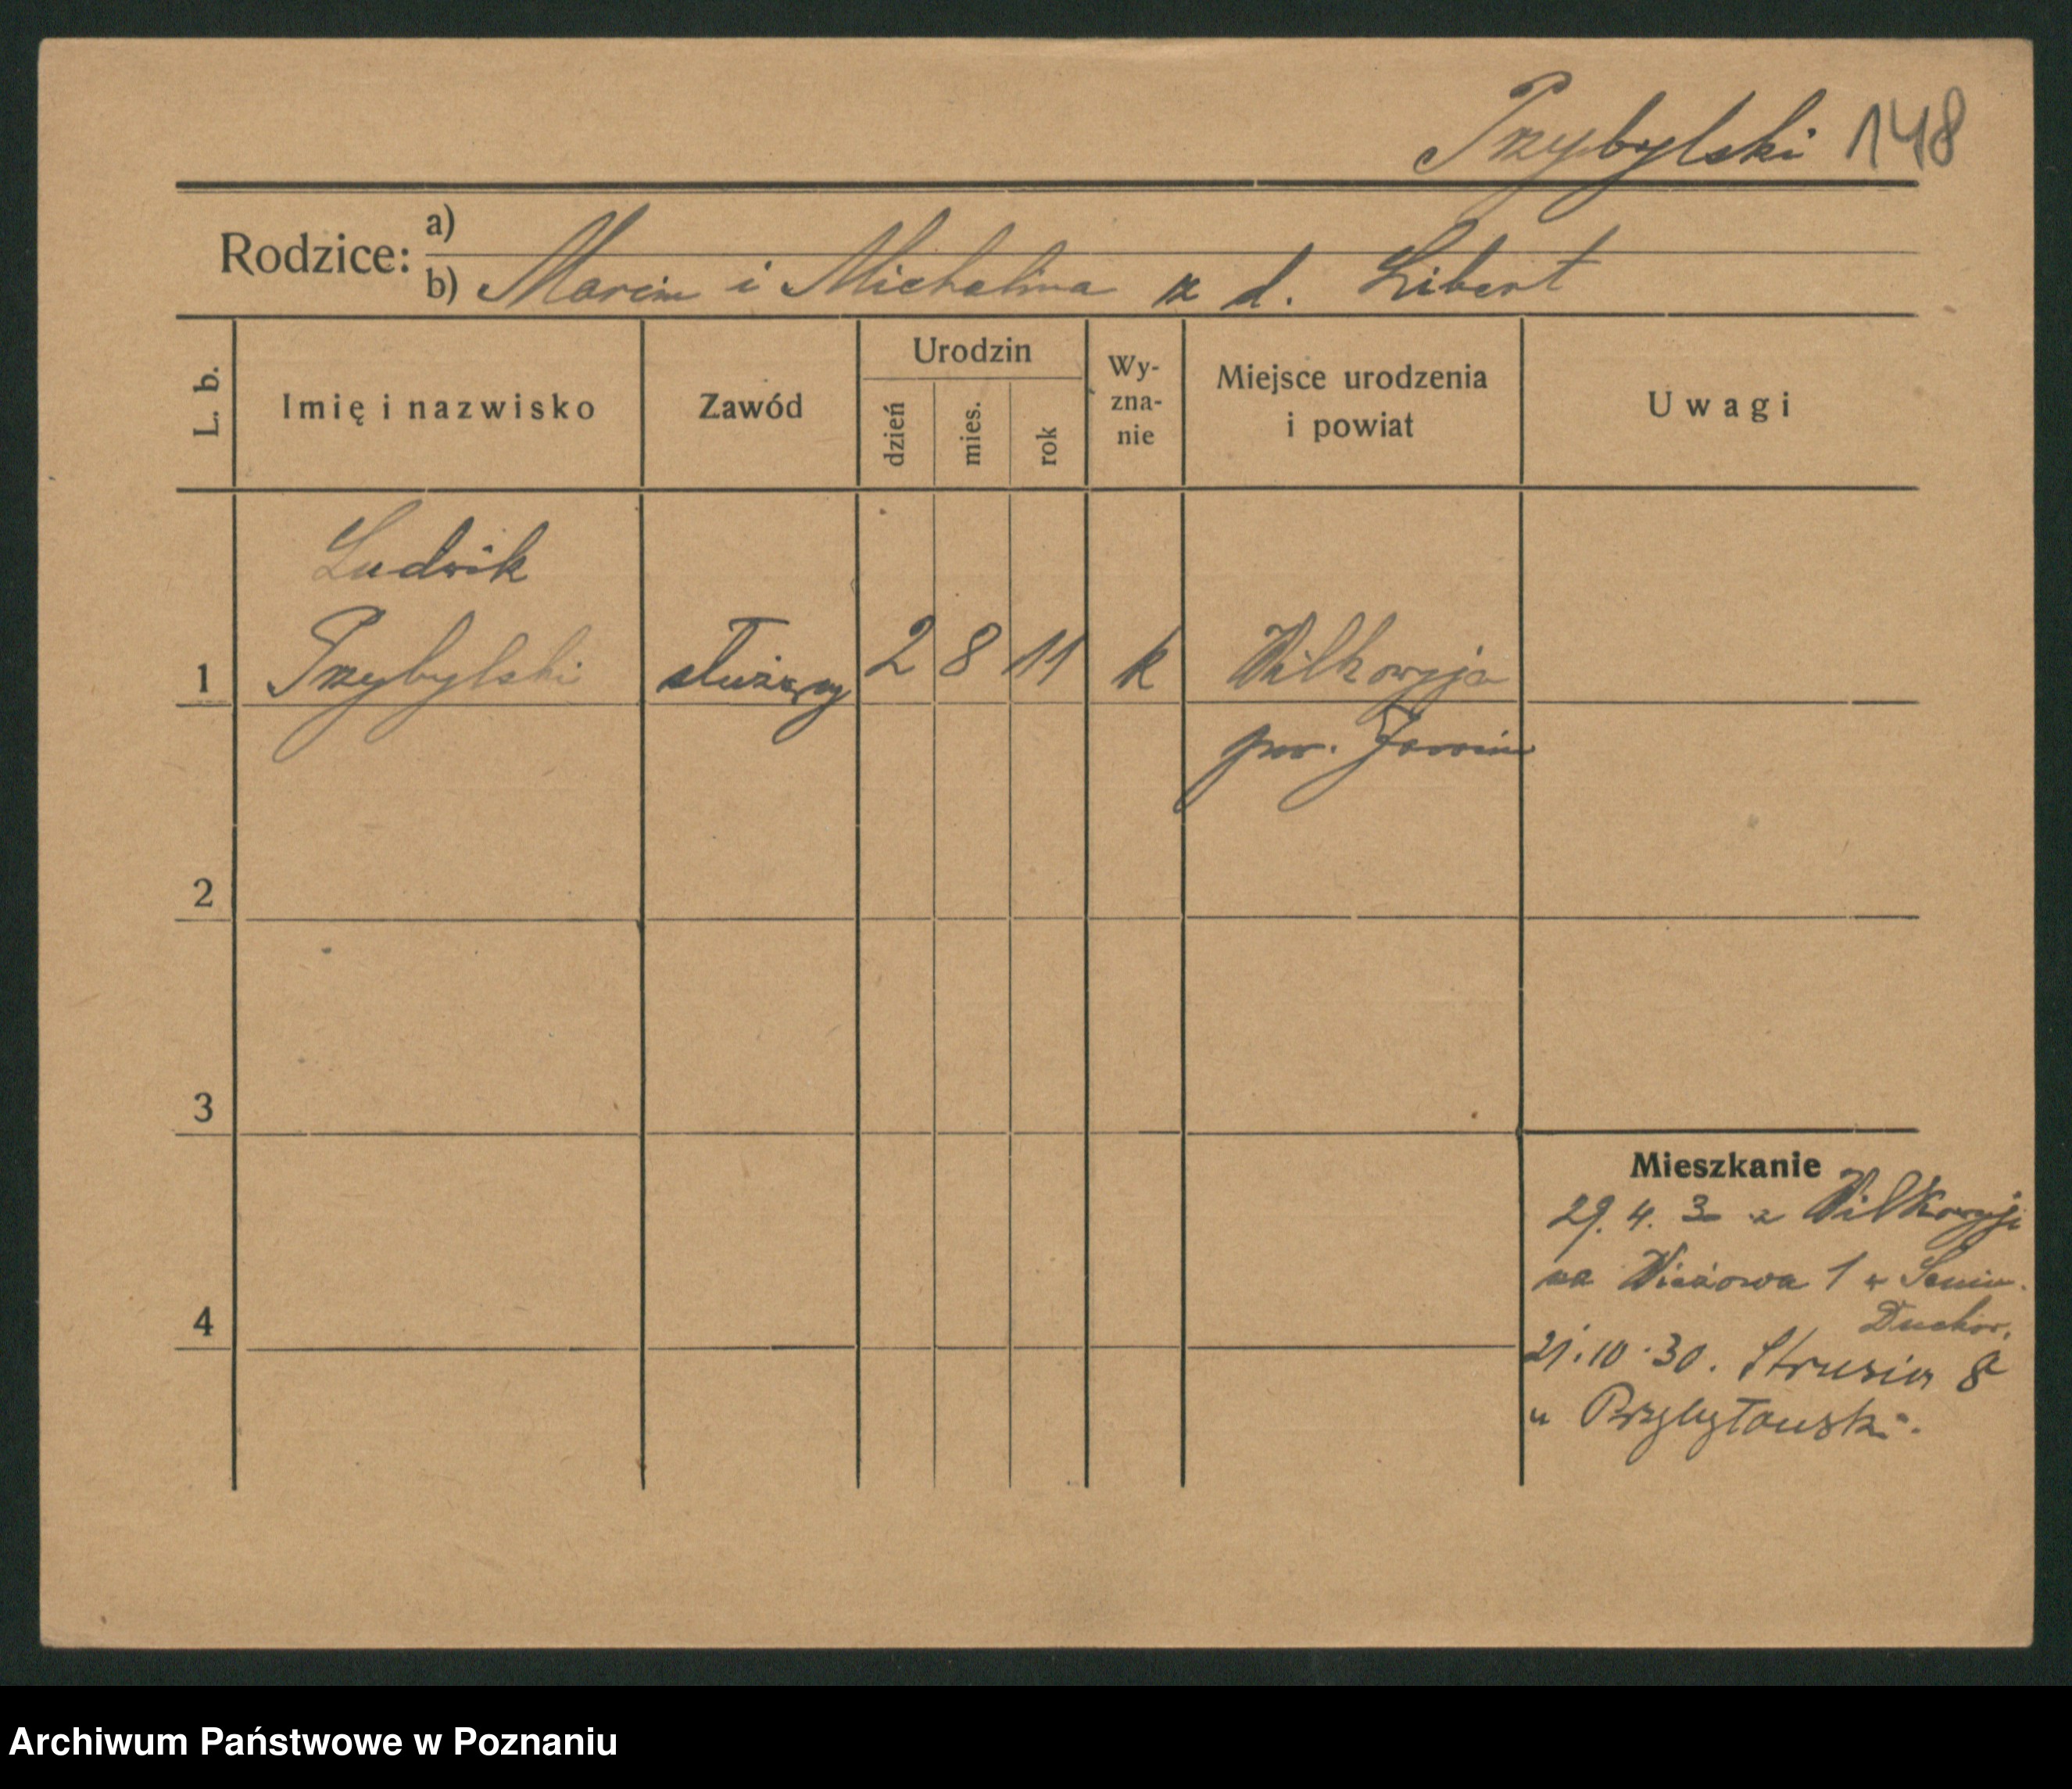 Przybylski 148
Rodzice: a)
b) Marcin i Michalina z d. Libert
L. b.
Imię i nazwisko
Zawód
Urodzin
dzień
mies.
rok
Wy-
zna-
nie
Miejsce urodzenia
i powiat
Uwagi
Ludwik
1 Przybylski służący 2 8 11 k Wilkowyja
pow. Jarocin
2
3
Mieszkanie
29. 4. 3 z Wilkowyji
na Wieżowa 1 w Semin.
Duchow.
4
21.10.30. Strusia 8
u Przybyłowski.
Archiwum Państwowe w Poznaniu